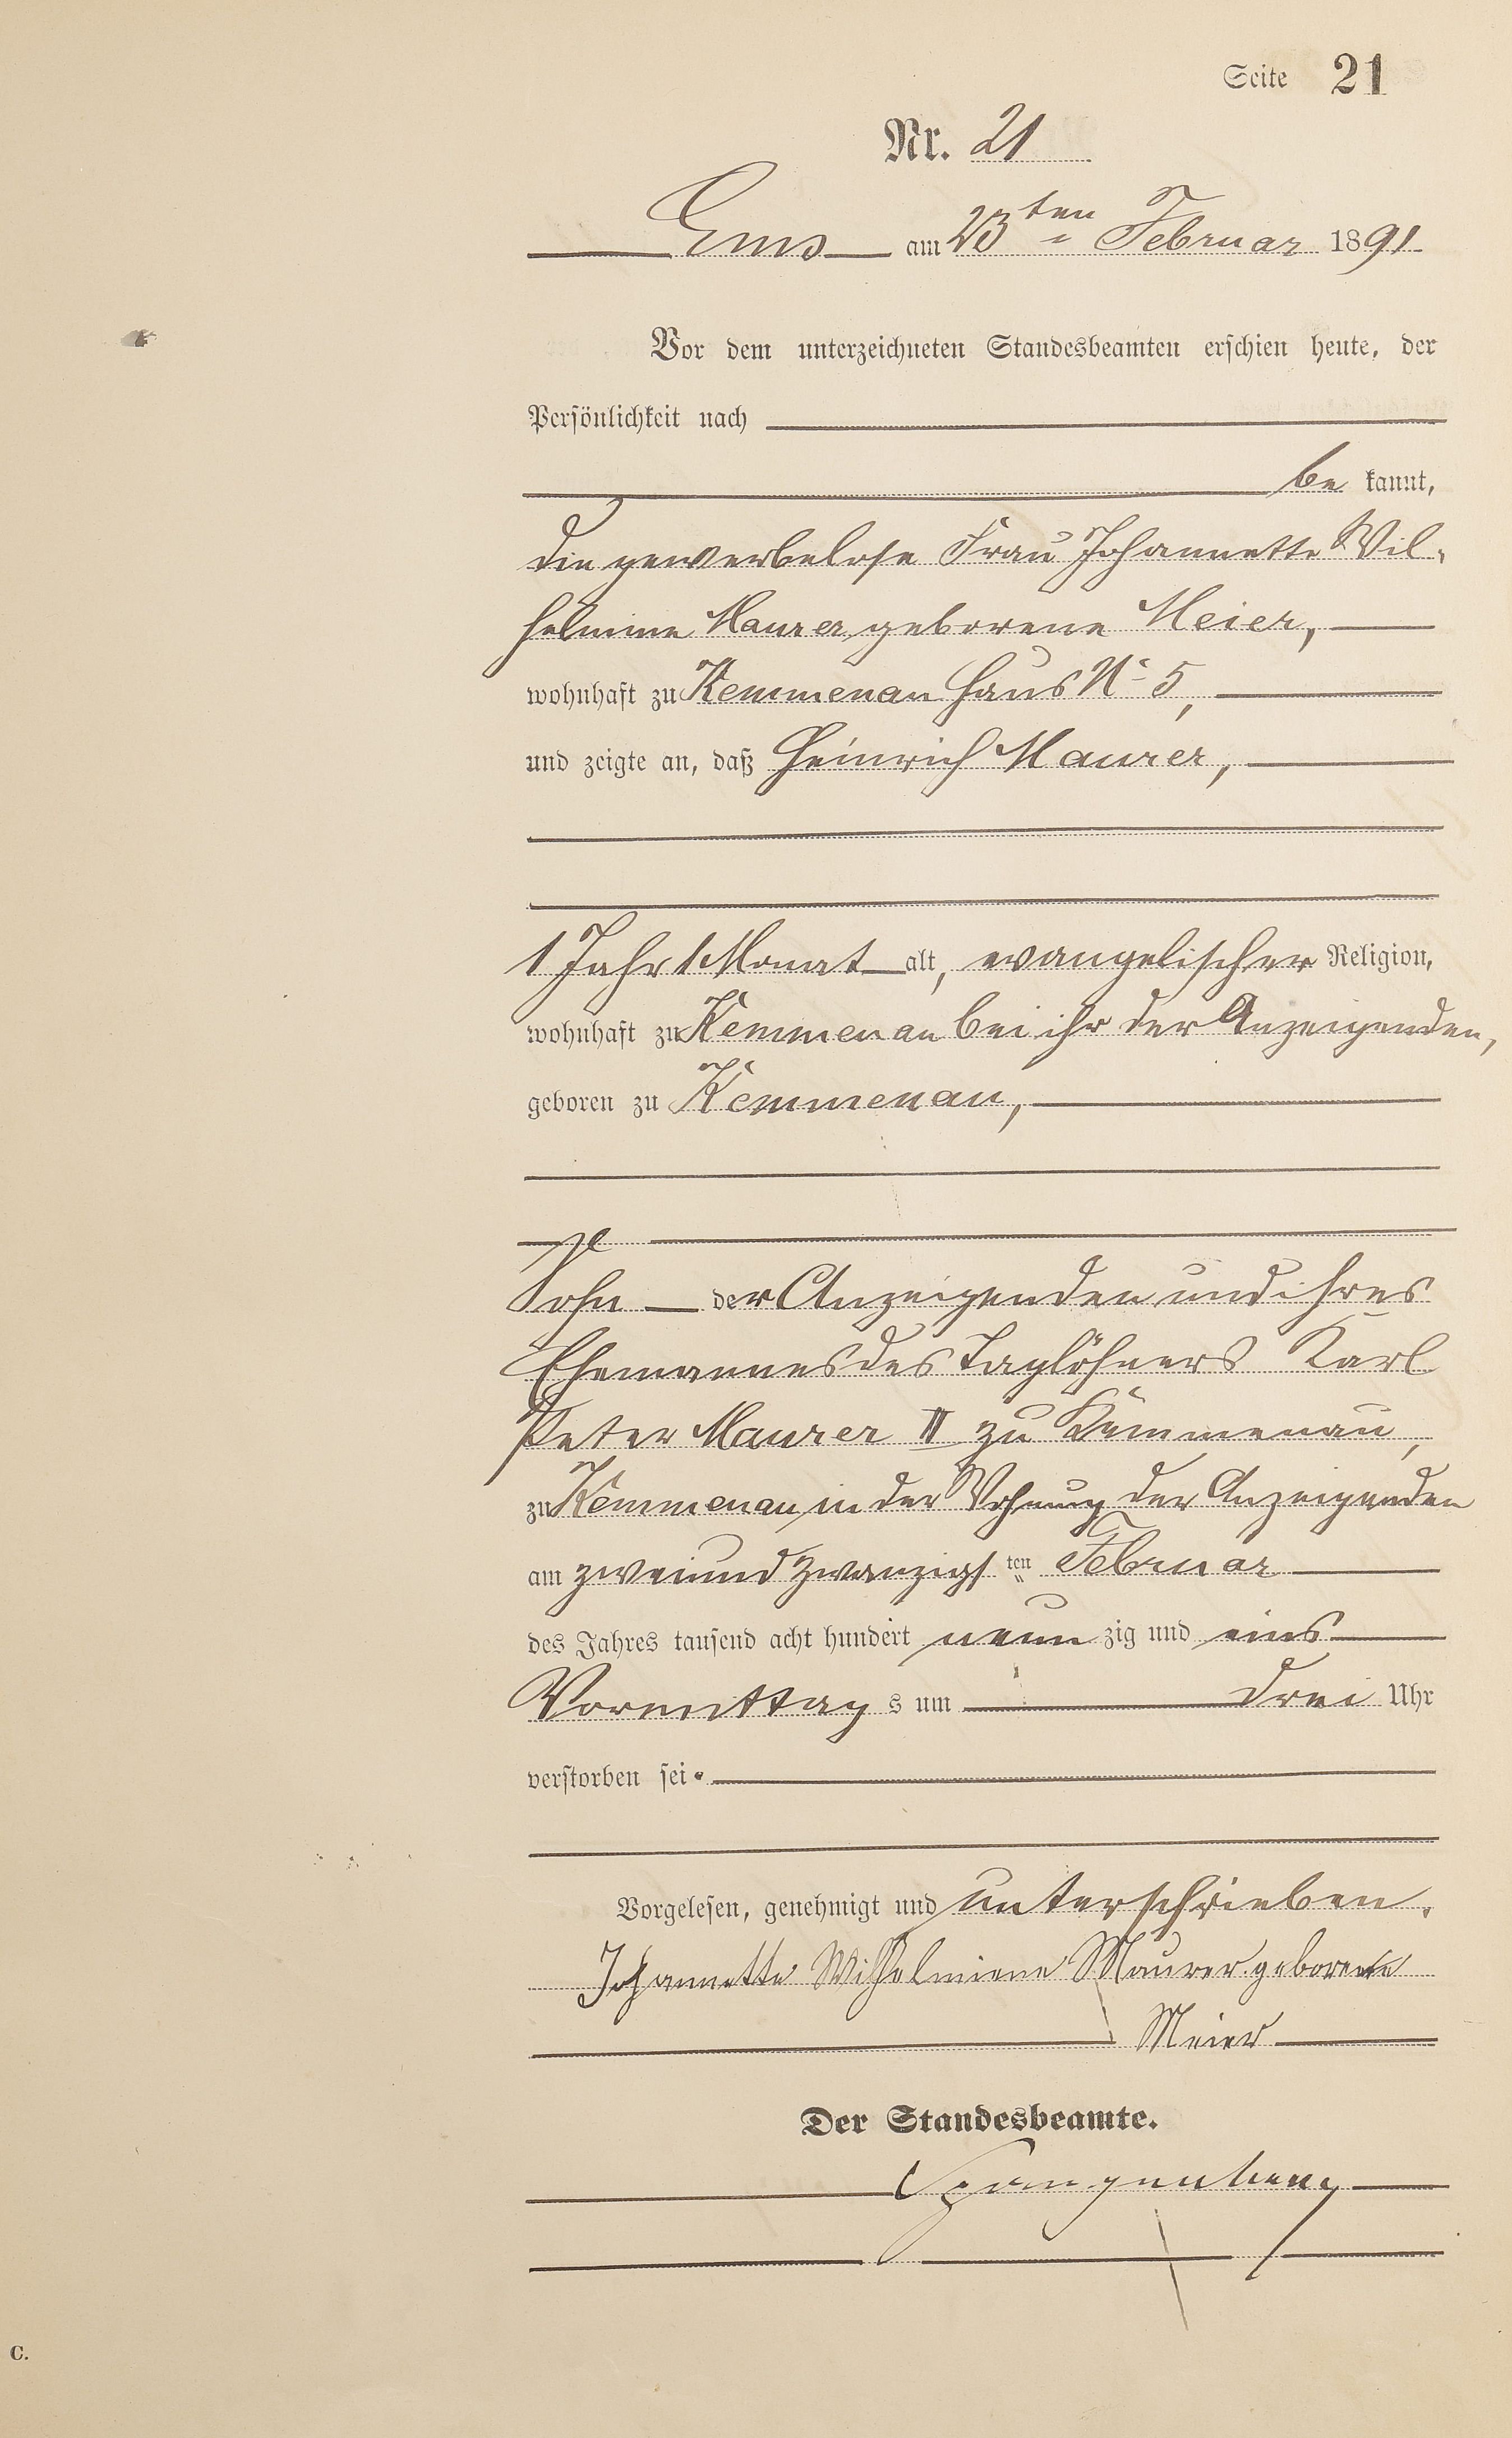 Seite 21
Nr. 21
Ems am 23ten Februar 1891
Vor dem unterzeichneten Standesbeamten erschien heute, der
Persönlichkeit nach
be kannt,
die gewerbelose Frau Johannette Wil-
helmine Maurer geborene Meier,
wohnhaft zu Kemmenau Haus No 5,
und zeigte an, daß Heinrich Maurer,
1 Jahr 1 Monat alt, evangelischer Religion,
wohnhaft zu Kemmenau bei ihr der Anzeigenden,
geboren zu Kemmenau,
Sohn der Anzeigenden und ihres
Ehemannes des Taglöhners Karl
Peter Maurer II zu Kemmenau,
zu Kemmenau in der Wohnung der Anzeigenden
am zweiundzwanzigsten Februar
des Jahres tausend acht hundert neun zig und eins
Vormittag s um drei Uhr
verstorben sei.
Vorgelesen, genehmigt und unterschrieben.
Johannette Wilhelmiene Maurer geborene
Meier
Der Standesbeamte.
Spangenberg
C.